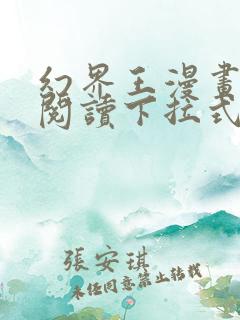 幻界王漫畫
閱讀下拉式
張安琪
未經同意禁止轉載